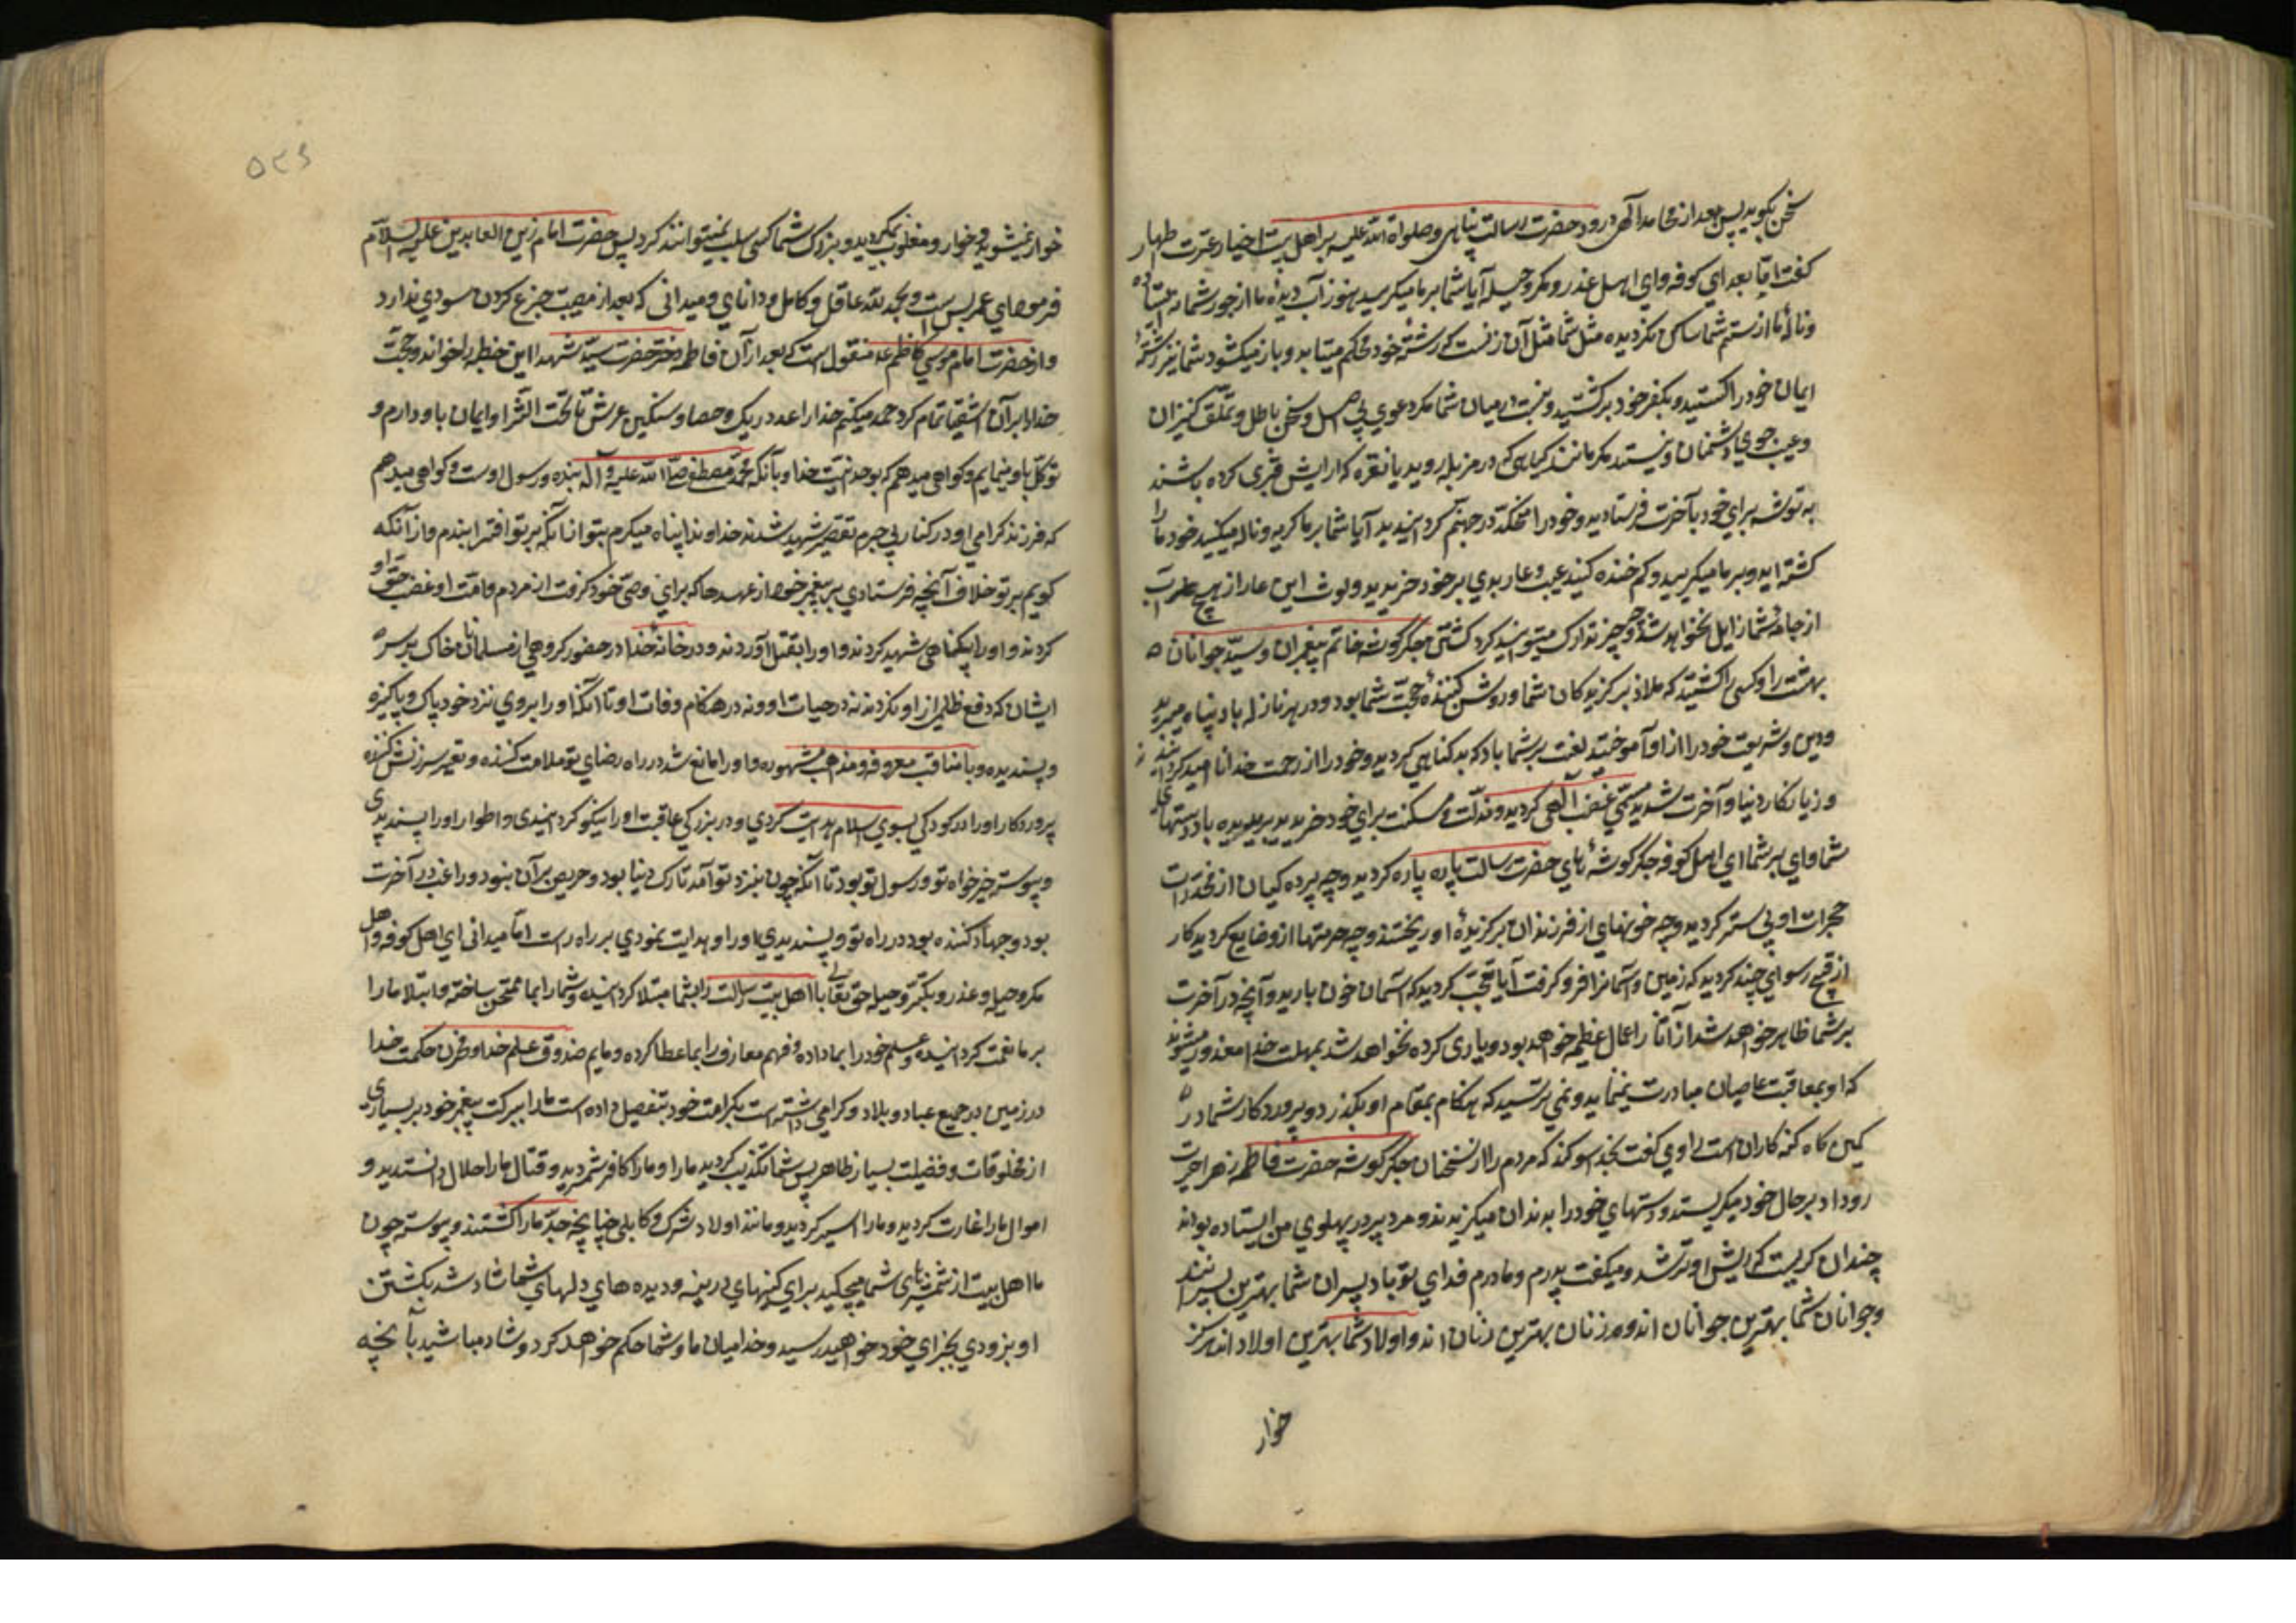 سخن بگوید پس بعد از محامد الهی درود حضرت رسالت پناهی و صلواة الله علیه بر اهل بیت اخیار و عترت طهار
کفت اما بعد ای کوفه و ای اهل غدر و مکر و حیله آیا شما بر ما میکریید هنوز آب دیده ما از جور شما نه ایستاده
و نالهٔ ما از ستم شما ساکن نکردیده مثل شما مثل آن زنست که رشتهٔ خود محکم میتابد و باز میکشود شما نیز رشتهٔ
ایمان خود را کسستید و بکفر خود برکشتید و نیست در میان شما مکر دعوی بی اصل و سخن باطل و تملق کنیزان
و عیب جویی دشمنان و نیستید مکر مانند کیاهی که در مزبله روید یا نقره که ارایش قبری کرده باشند
به توشه برای خود بآخرت فرستادید و خود را مخلد در جهنم کردانیدید آیا شما بر ما کریه و ناله میکنید خود ما را
کشته اید و بر ما میکریید و کم خنده کنید عیب و عار بدی بر خود خریدید و لوث این عار از هیچ آب
از جامهٔ شما زایل نخواهد شد و چه چیز تدارک میتوانید کرد کشتن جکر کوشه خاتم پیغمبران و سید جوانان
بهشت را و کسی را کشتید که ملاذ برکزیدکان شما و روشن کنندهٔ حجت شما بود و در هر نازله باو پناه میبردید
و دین و شریعت خود را از او آموختید لعنت بر شما باد که بد کناهی کردید و خود را از رحمت خدا نا امید کردانیدید
و زیانکار دنیا و آخرت شدید مستحق غضب الهی کردید و مذلت و مسکنت برای خود خریدید بریده باد دستهای
شما وای بر شما ای اهل کوفه چه جکر کوشه های حضرت رسالت پاره پاره کردید و چه پرده کیان از مخدرات
حجرات او بی ستر کردید و چه خونهای از فرزندان برکزیدهٔ او ریختند و چه حرمتها از او ضایع کردید کار
از قبح رسوای چند کردید که زمین و آسمانرا فرو کرفت آیا تعجب کردید که آسمان خون بارید و آنچه در آخرت
بر شما ظاهر خواهد شد از آثار اعمال عظیم خواهد بود و یاری کرده نخواهد شد بمهلت خدا مغرور مشوید
که او بمعاقبت عاصیان مبادرت نمینماید و نمی ترسید که هنکام بمقام او بکذرد و پروردکار شما در
کمین کاه کنه کاران است راوی کفت بخدا سوکند که مردم را از سخنان جکر کوشه حضرت فاطمه زهرا حیرت
رو داد بر حال خود میکریستند و دستهای خود را بدندان میکزیدند و مرد پیر در پهلوی من ایستاده بود
چندان کریست که ریش او تر شد و میکفت پدرم و مادرم فدای تو باد پیران شما بهترین پیرانند
و جوانان شما بهترین جوانان اند و زنان بهترین زنان اند و اولاد شما بهترین اولاد اند هرکز
خوار
۵۲۶
خوار نمیشوید و خوار و مغلوب نکردید و بزرک شما کسی سلب نمیتوانند کرد پس حضرت امام زین العابدین علیه السلام
فرمود ای عمه بس است و بحمد لله عاقل و کامل و دانای و میدانی که بعد از مصیبت جزع کردن سودی ندارد
و از حضرت امام موسی کاظم ع منقول است که بعد از آن فاطمه دختر حضرت سید شهدا این خطبه را خواند و حجت
خدا را بر آن اشقیا تمام کرد حمد میکنم خدا را بعدد ریک و حصا و سنکین عرش تا تحت الثرا و ایمان باو دارم و
توکل باو مینمایم و کواهی میدهم که بوحدنیت خدا و بآنکه محمد مصطفی صلی الله علیه و آله بنده و رسول اوست و کواهی میدهم
که فرزند کرامی او در کنار بی جرم تقصیر شهید شدند خداوندا پناه میکرم بتو از آنکه بر تو افترا بندم و از آنکه
کویم بر تو خلاف آنچه فرستادی بر پیغمبر خود از عهدها که برای وصی خود کرفت از مردم و امت او غصب حق او
کردند و او را بیکناهی شهید کردند و او را بقتل آوردند و در خانهٔ خدا در حضور کروهی از مسلمانان خاک بر سر
ایشان که دفع ظالمی از او نکردند نه در حیات او و نه در هنکام وفات او تا آنکه او را بروی نزد خود پاک و پاکیزه
و پسندیده و با مناقب معروفه و مذاهب مشهوره و او را مانع نشد در راه رضای تو ملامت کننده و تغییر سرزنش کننده
پروردکارا او را در کودکی بسوی اسلام هدایت کردی و در بزرکی عاقبت او را نیکو کردانیدی و اطوار او را پسندیدی
و پیوسته خیر خواه تو و رسول تو بود تا آنکه چون بنزد تو آمد تارک دنیا بود و حریص بر آن نبود و راغب در آخرت
بود و جهاد کننده بود در راه تو و پسندیدی او را و هدایت نمودی بر راه راست اما میدانی ای اهل کوفه و اهل
مکر و حیله و غدر و تکبر و حیله حق تعالی با اهل بیت رسالت را بشما مبتلا کردانیده و شما را بما ممتحن ساخته و ابتلا ما را
بر ما نعمت کردانیده و علم خود را بما داده و فهم معارف را بما عطا کرده و مایم صندوق علم خدا و مخزن حکمت خدا
در زمین بر جمیع عباد و بلاد و کرامی داشته است بکرامت خود بتفصیل داده است ما را ببرکت پیغمبر خود بر بسیاری
از مخلوقات و فضیلت بسیار ظاهر پس شما تکذیب کردید ما را و ما را کافر شمردید و قتال ما را حلال دانستدید و
اموال ما را غارت کردید و ما را اسیر کردید و مانند اولاد ترک و کابلی چنانچه جد ما را کشتند و پیوسته چون
ما اهل بیت از شمشیرهای شما میچکید برای کینهای دیرینه و دیده های دلهای شما شاد شد بکشتن
او بزودی بجزای خود خواهید رسید و خدا میان ما و شما حکم خواهد کرد و شاد مباشید بآنچه